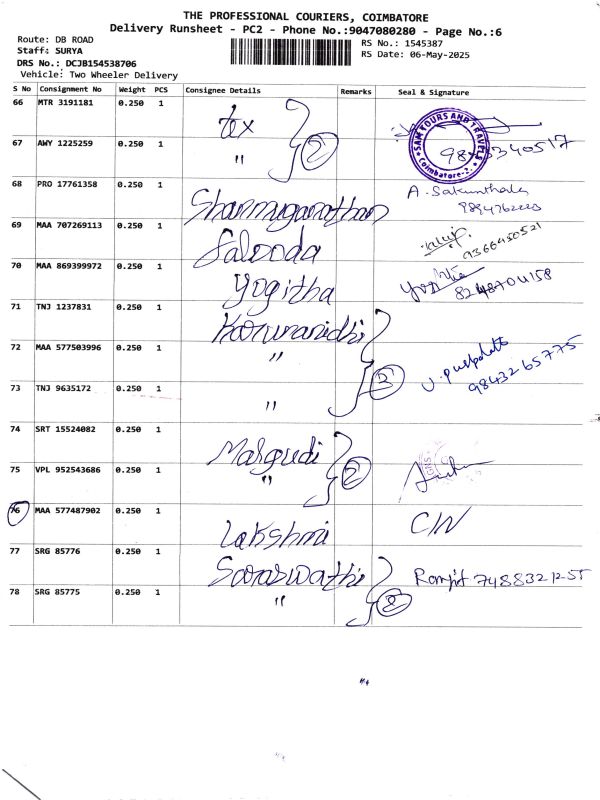 THE PROFESSIONAL COURIERS, COIMBATORE
Delivery Runsheet - PC2 - Phone No.:9047080280 - Page No.:6
Route: DB ROAD
RS No.: 1545387
Staff: SURYA
RS Date: 06-May-2025
DRS No.: DCJB154538706
Vehicle: Two Wheeler Delivery
S No Consignment No Weight PCS Consignee Details Remarks Seal & Signature
66 MTR 3191181 0.250 1 tex
67 AWY 1225259 0.250 1 " 2 SAM TOURS AND TRAVELS Coimbatore-2.
68 PRO 17761358 0.250 1 Shanmuganathan A. Sakunthala
69 MAA 707269113 0.250 1 Falooda 9366450521
70 MAA 869399972 0.250 1 Yogitha 8248704158
71 TNJ 1237831 0.250 1 Karunanidhi
72 MAA 577503996 0.250 1 " 3 9843265775
73 TNJ 9635172 0.250 1 "
74 SRT 15524082 0.250 1 Malgudi
75 VPL 952543686 0.250 1 " 2
76 MAA 577487902 0.250 1 Lakshmi C/N
77 SRG 85776 0.250 1 Saraswathi Ranjit 7488321255
78 SRG 85775 0.250 1 " 2